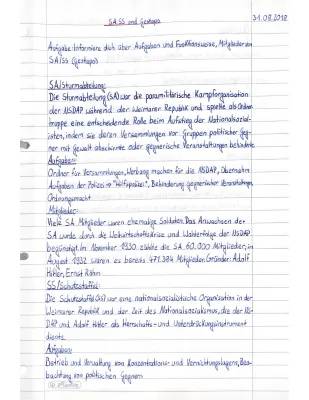 SA,SS und Gestapo
31.08.2018
Aufgabe: Informiere dich über Aufgaben und Funktionsweise, Mitglieder von
SA/SS (Gestapo)
SA/Sturmabteilung:
Die Sturmabteilung (SA) war die paramilitärische Kampforganisation
der NSDAP während der Weimarer Republik und spielte als Ordner-
truppe eine entscheidende Rolle beim Aufstieg der Nationalsozial-
isten, indem sie deren Versammlungen vor Gruppen politischer Geg-
ner mit Gewalt abschirmte oder gegnerische Veranstaltungen behinderte.
Aufgaben:
Ordner für Versammlungen, Werbung machen für die NSDAP, Übernahm
Aufgaben der Polizei → "Hilfspolizei", Behinderung gegnerischer Veranstaltungen,
Ordnungsmacht
Mitglieder:
Viele SA Mitglieder waren ehemalige Soldaten. Das Anwachsen der
SA wurde durch die Weltwirtschaftskrise und Wahlerfolge der NSDAP
begünstigt. Im November 1930 zählte die SA 60.000 Mitglieder, im
August 1932 waren es bereits 471.384 Mitglieder. Gründer: Adolf
Hitler, Ernst Röhm
SS/Schutzstaffel:
Die Schutzstaffel (SS) war eine nationalsozialistische Organisation in der
Weimarer Republik und der Zeit des Nationalsozialismus, die der NS-
DAP und Adolf Hitler als Herrschafts- und Unterdrückungsinstrument
diente.
Aufgaben:
Betrieb und Verwaltung von Konzentrations- und Vernichtungslagern, Beo-
bachtung von politischen Gegnern